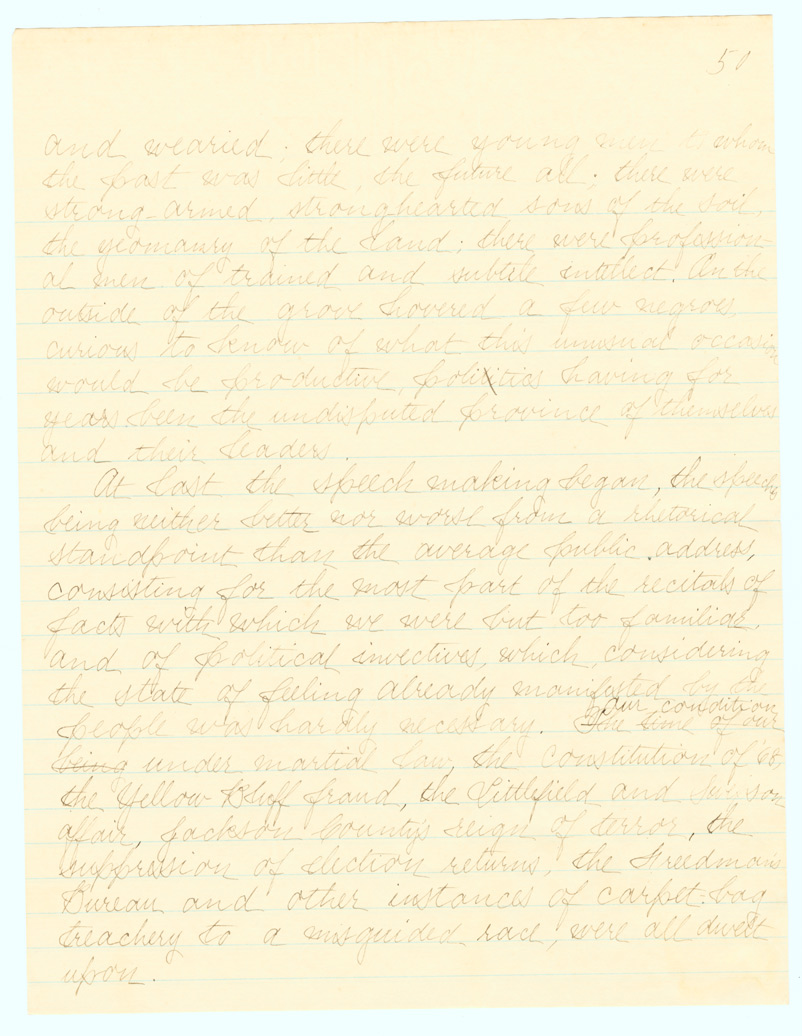 50
and wearied; there were young men to whom
the past was little, the future all; there were
strong-armed, stronghearted sons of the soil,
the yeomanry of the land; there were profession-
al men of trained and subtile intellect. On the
outside of the grove hovered a few negroes,
curious to know of what this unusual occasion
would be productive, politics having for
years been the undisputed province of themselves
and their leaders.
At last the speech making began, the speeches
being neither better nor worse from a rhetorical
standpoint than the average public address,
consisting for the most part of the recitals of
facts with which we were but too familiar,
and of political invectives, which, considering
the state of feeling already manifested by the
people was hardly necessary. The time of our
our condition
being under martial law, the constitution of '68,
the Yellow Bluff fraud, the Littlefield and
affair, Jackson County's reign of terror, the
suppression of election returns, the Freedman's
Bureau and other instances of carpet-bag
treachery to a misguided race, were all dwelt
upon.